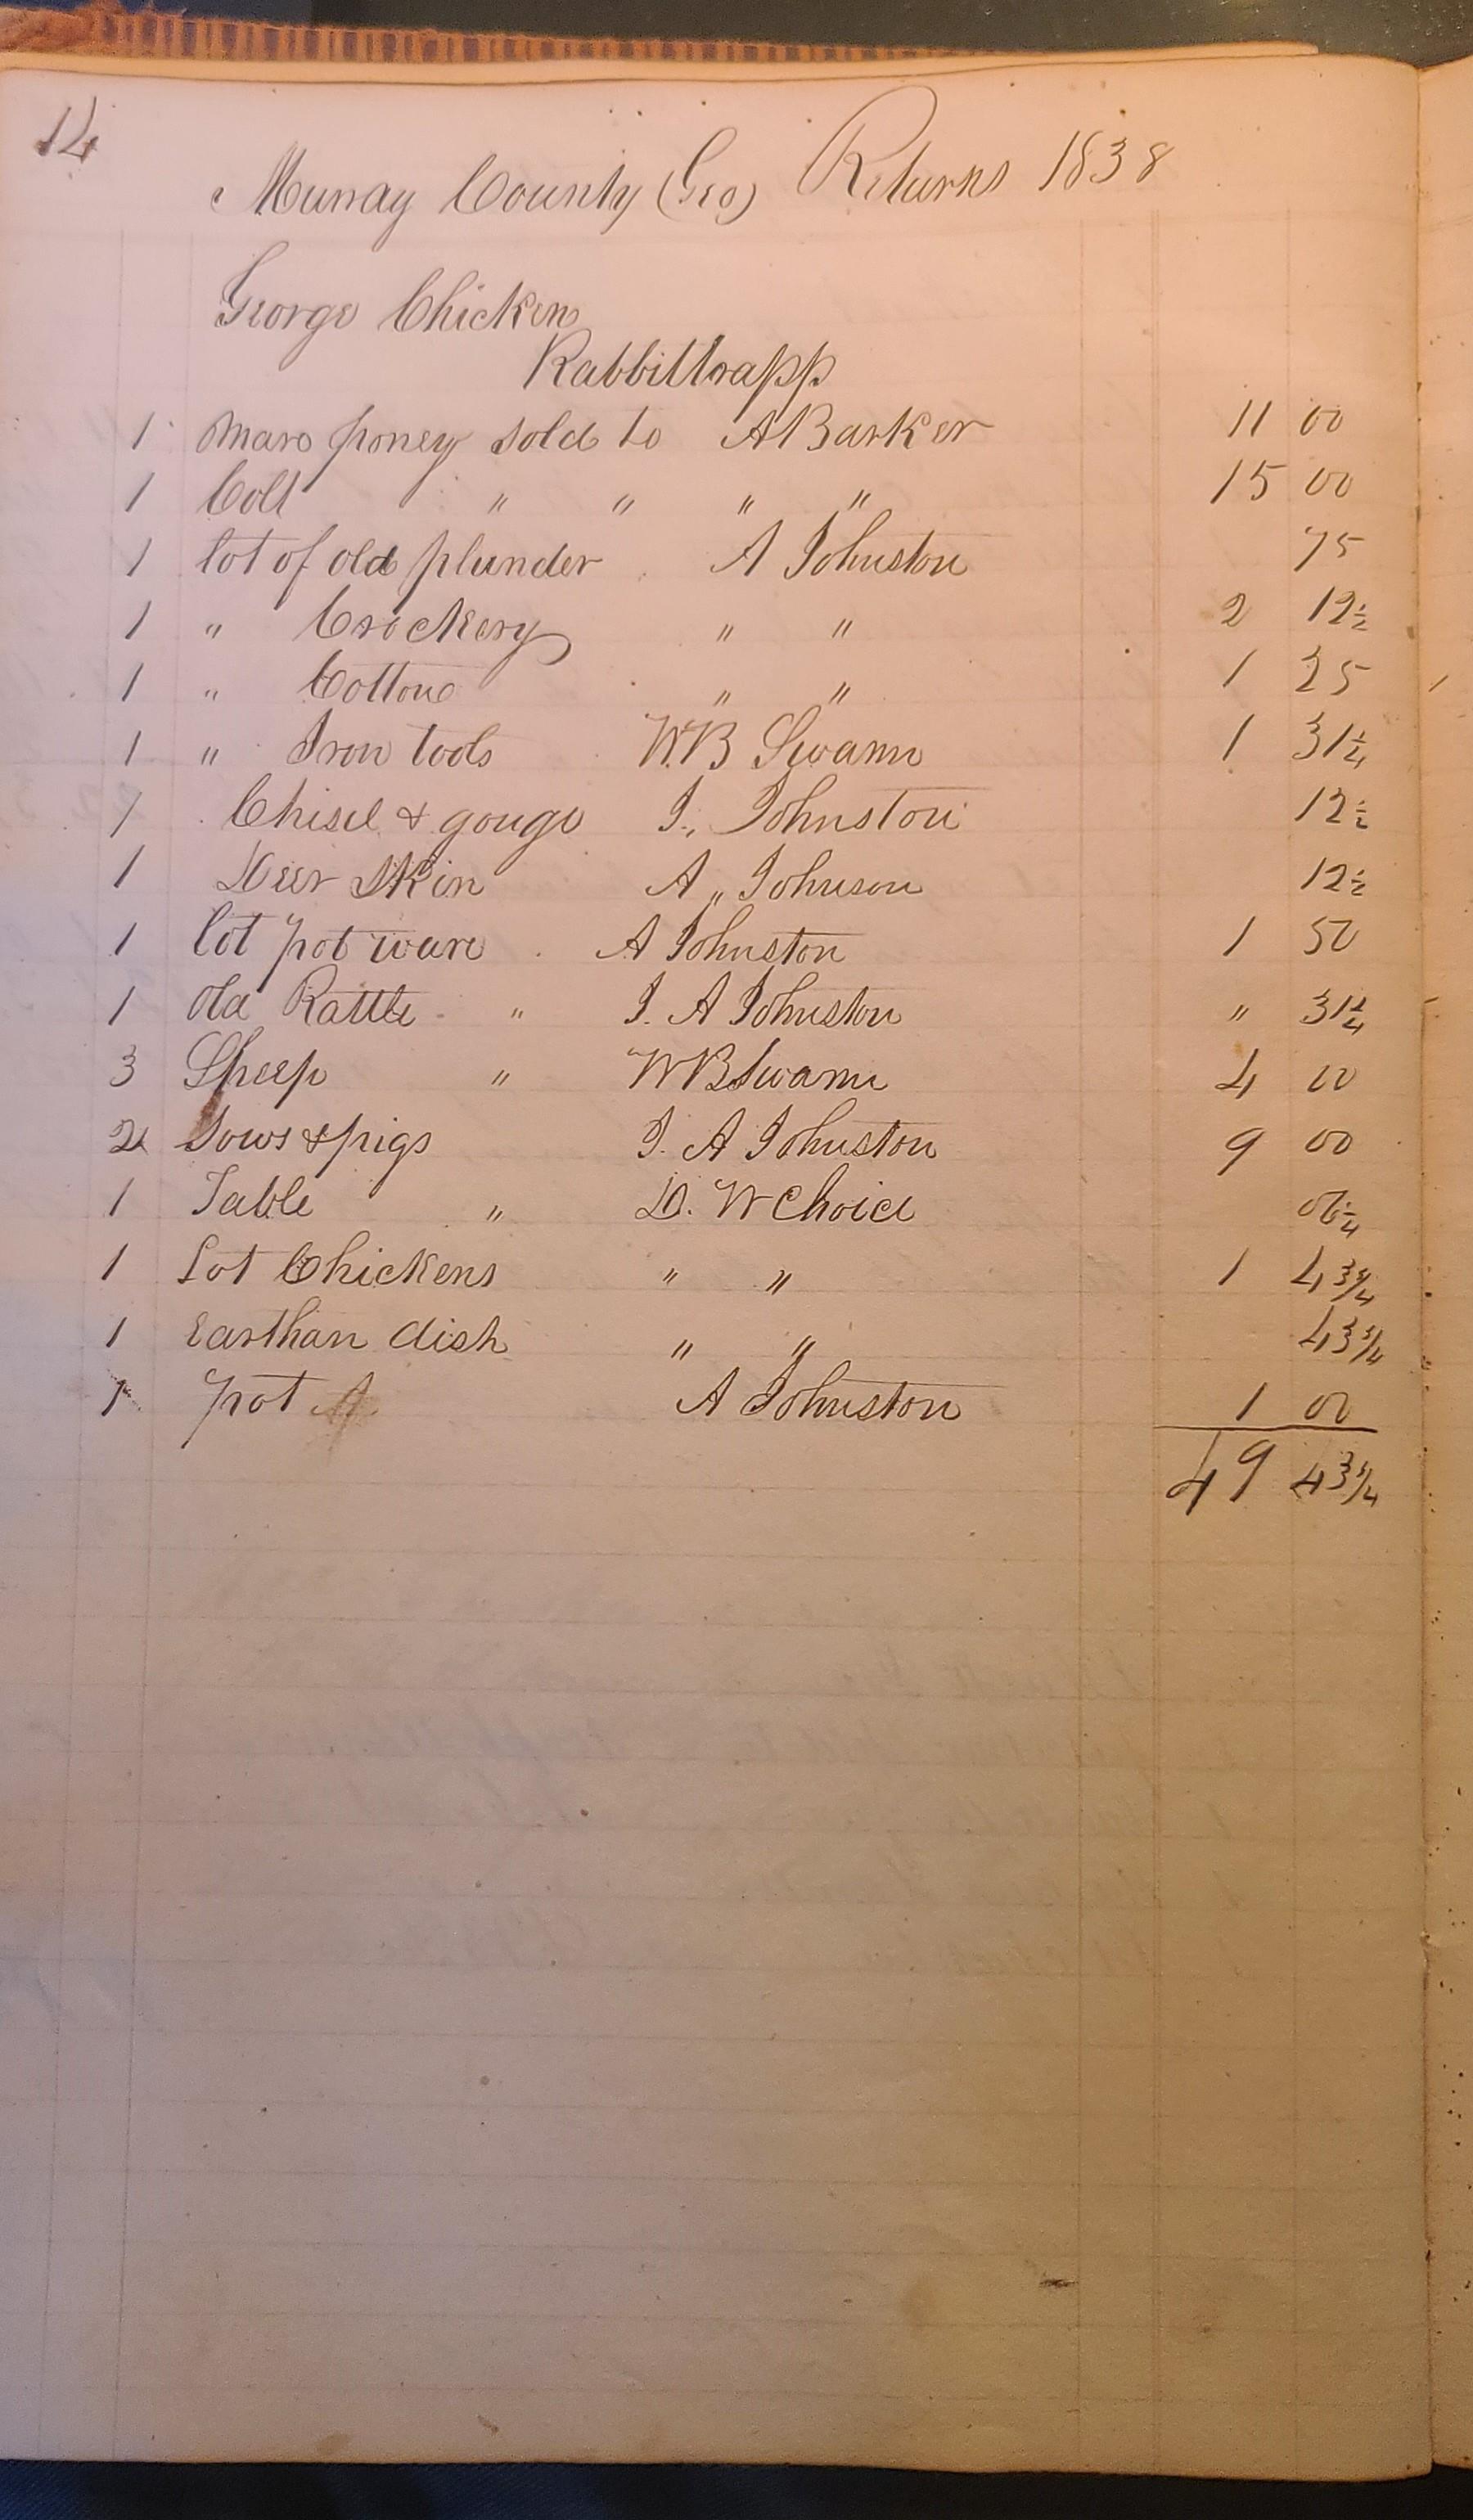 14
Murray County (Geo) Returns 1838
George Chicken
Rabbittrapp
1 Mare poney sold to A Barker 11 00
1 Colt " " " " 15 00
1 lot of old plunder A Johnston 75
1 " Crockery " " 2 12½
1 " Cotton " " 1 25
1 " Iron tools W.B Swann 1 31¼
1 Chisel & gouge J. Johnston 12½
1 Deer Skin A " Johnson 12½
1 lot pot ware A Johnston 1 50
1 old Rattle " J. A Johnston " 31¼
3 Sheep " W B Swann 4 00
2 Sows & pigs J. A Johnston 9 00
1 Table " D. W Choice 06¼
1 Lot Chickens " " 1 43¾
1 Earthan dish " " 43¾
1 pot A Johnston 1 00
49 43¾